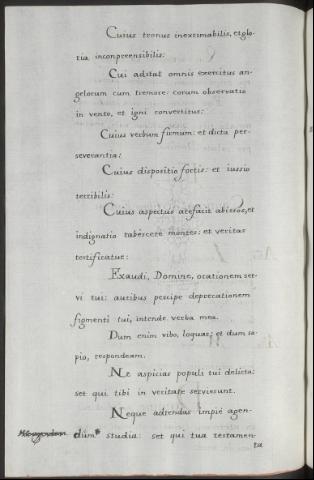 Cuius tronus inextimabilis, et glo-
ria inconpreensibilis:
Cui adstat omnis exercitus an-
gelorum cum tremore: corum observatio
in vento, et igni convertitur:
Cuius verbum firmum: et dicta per-
severantia:
Cuius dispositio fortis: et iussio
terribilis:
Cuius aspectus arefacit abissos, et
indignatio tabescere montes: et veritas
testificatur:
Exaudi, Domine, orationem ser-
vi tui: auribus percipe deprecationem
figmenti tui, intende verba mea.
Dum enim vibo, loquar; et dum sa-
pio, respondeam.
Ne aspicias populi tui delicta:
set qui tibi in veritate serviesunt.
Neque adtendas impie agen-
dum studia: set qui tua testamen-
ta